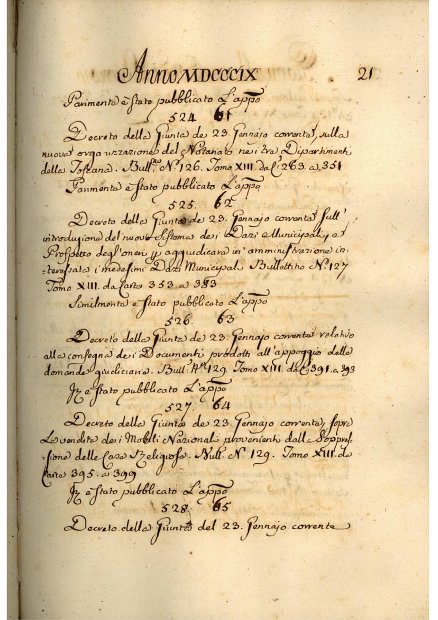 Anno MDCCCIX 21
Parimente è stato pubblicato L'appo
524 61
Decreto della Giunta de 23 Gennajo corrente, sulla
nuova organizzazione del Notariato nei tre Dipartimenti
della Toscana. Bull.no N.126. Tomo XIII da c. 263 a 351
Parimente è stato pubblicato L'appo
525. 62
Decreto della Giunta de 23 Gennajo corrente sull'
introduzione del nuovo Sistema dei Dazi Municipali, e
Prospetto degl'oneri p aggiudicare in amministrazione in-
teressata i medesimi Dazi Municipali. Bullettino N.127
Tomo XIII da Carte 353 a 383
Similmente è stato pubblicato L'appo
526. 63
Decreto della Giunta de 23 Gennajo corrente relativo
alla consegna dei Documenti prodotti all'appoggio delle
domande giudiciarie. Bull. N.129. Tomo XIII. da c. 391 a 393
È stato pubblicato L'appo
527. 64
Decreto della Giunta de 23. Gennajo corrente, sopra
La vendita dei Mobili Nazionali provenienti dalla Soppres-
sione delle Case Religiose. Bull. N. 129. Tomo XIII. da
Carte 395. a 399
È stato pubblicato L'appo
528. 65
Decreto della Giunta del 23. Gennajo corrente